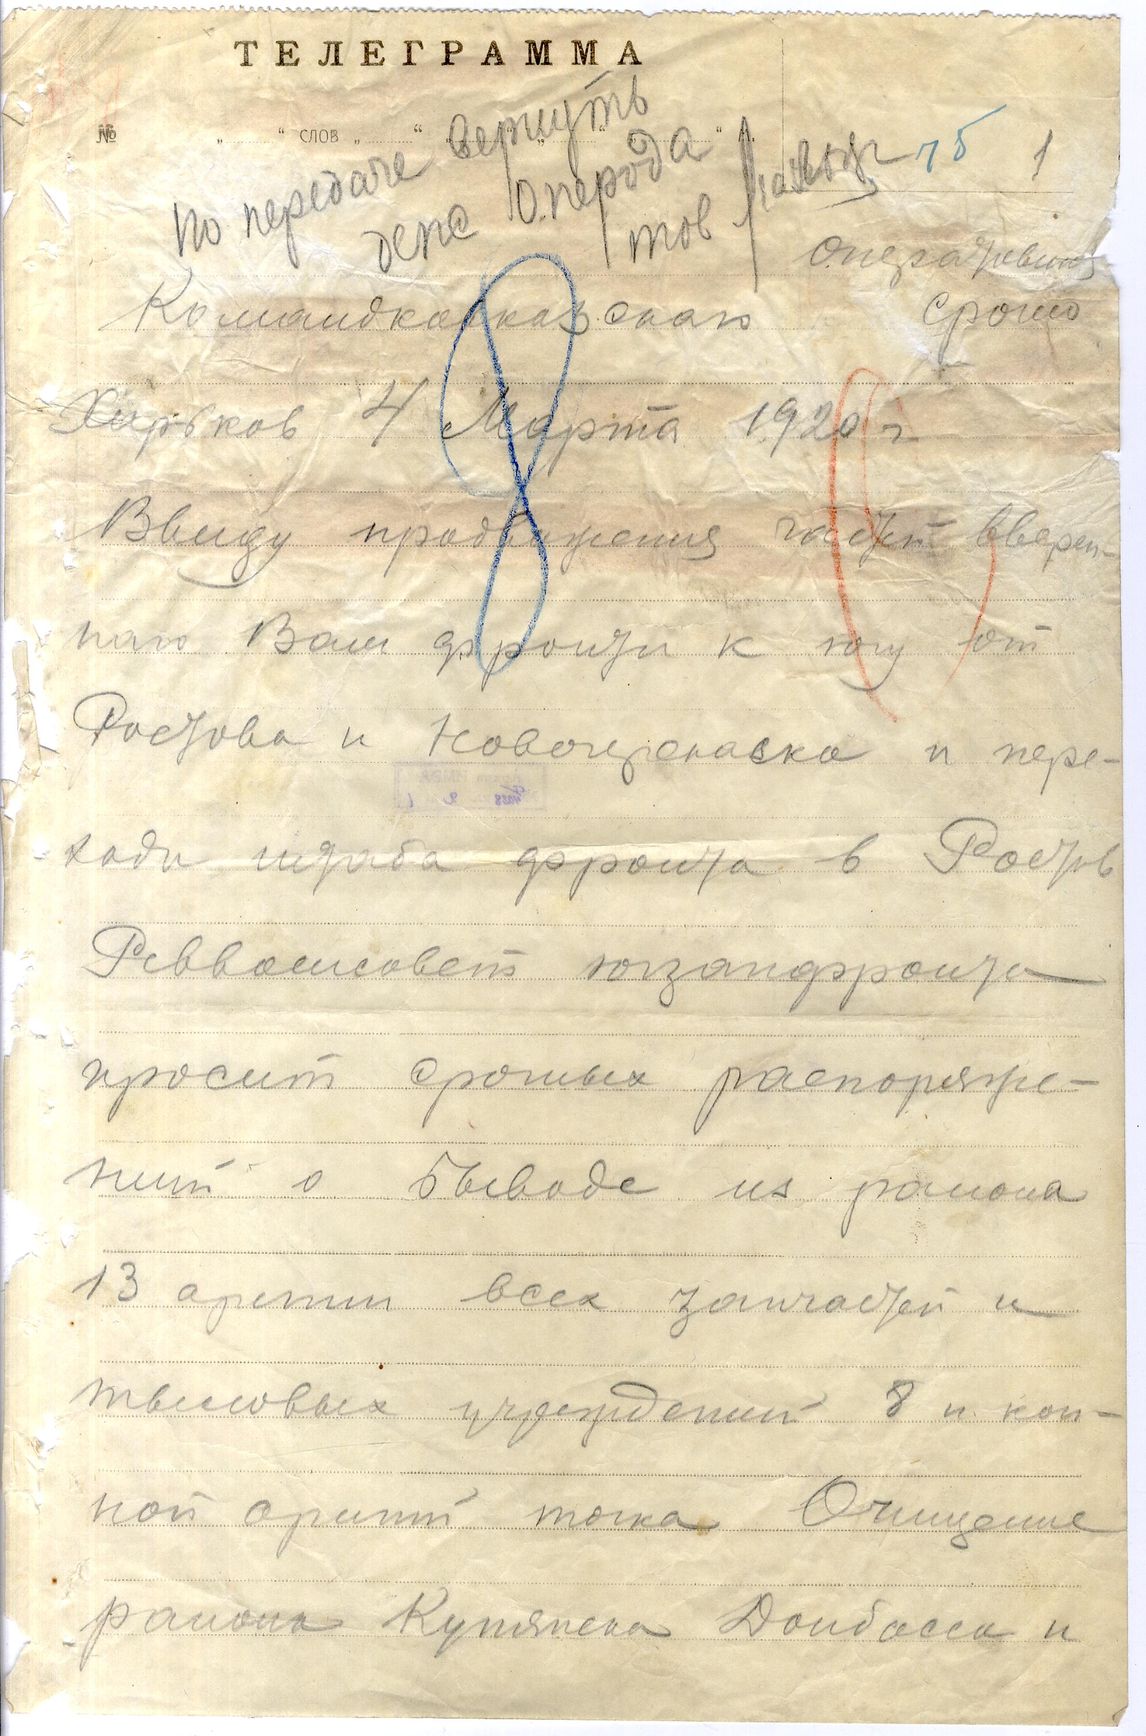 ТЕЛЕГРАММА
№ „ “ слов „ “
По передаче вернуть
деж Оперода
тов
15 1
Оперативная
Командкавказскаго Срочно
Харьков 4 Марта 1920 г
Ввиду продвижения частей вверен-
наго Вам фронта к югу от
Ростова и Новочеркасска и пере-
хода штаба фронта в Ростов
Реввоенсовет югзапфронта
просит срочных распоряже-
ний о выводе из района
13 армии всех запчастей и
тыловых учреждений 8 и кон-
ной армий точка Очищение
района Купянска Донбасса и